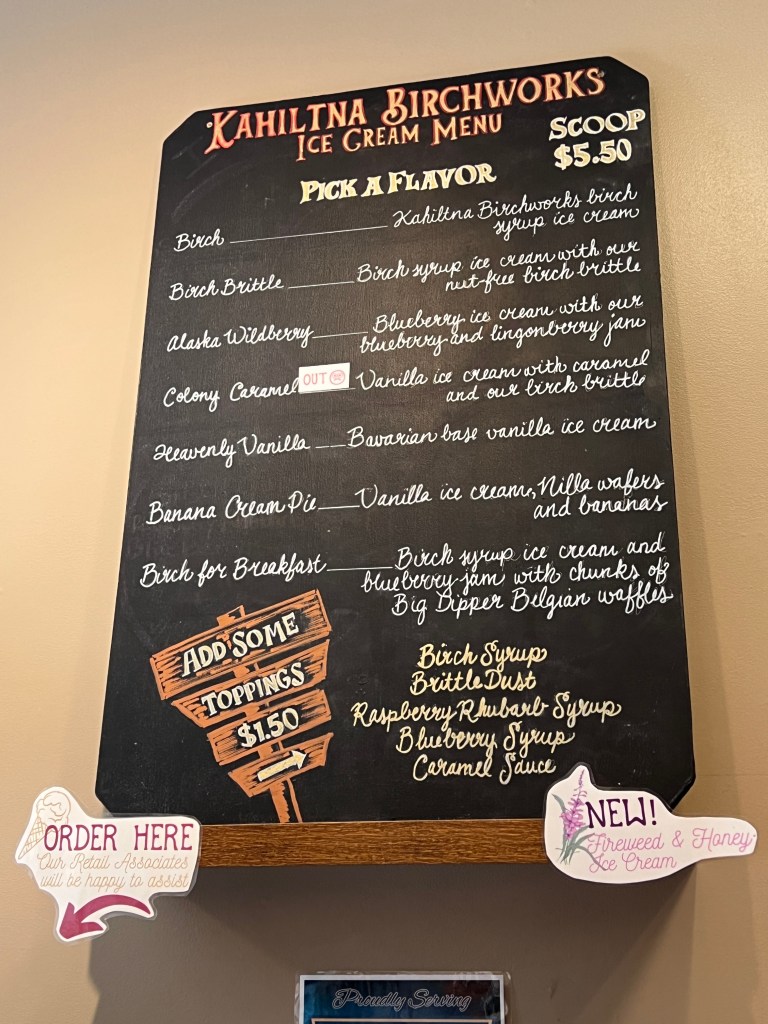 KAHILTNA BIRCHWORKS
ICE CREAM MENU
SCOOP
$5.50
PICK A FLAVOR
Birch Kahiltna Birchworks birch
syrup ice cream
Birch Brittle Birch syrup ice cream with our
nut-free birch brittle
Alaska Wildberry Blueberry ice cream with our
blueberry and lingonberry jam
Colony Caramel OUT Vanilla ice cream with caramel
and our birch brittle
Heavenly Vanilla Bavarian base vanilla ice cream
Banana Cream Pie Vanilla ice cream, Nilla wafers
and bananas
Birch for Breakfast Birch syrup ice cream and
blueberry jam with chunks of
Big Dipper Belgian waffles
ADD SOME
TOPPINGS
$1.50
Birch Syrup
Brittle Dust
Raspberry Rhubarb Syrup
Blueberry Syrup
Caramel Sauce
ORDER HERE
Our Retail Associates
will be happy to assist
NEW!
Fireweed & Honey
Ice Cream
Proudly Serving